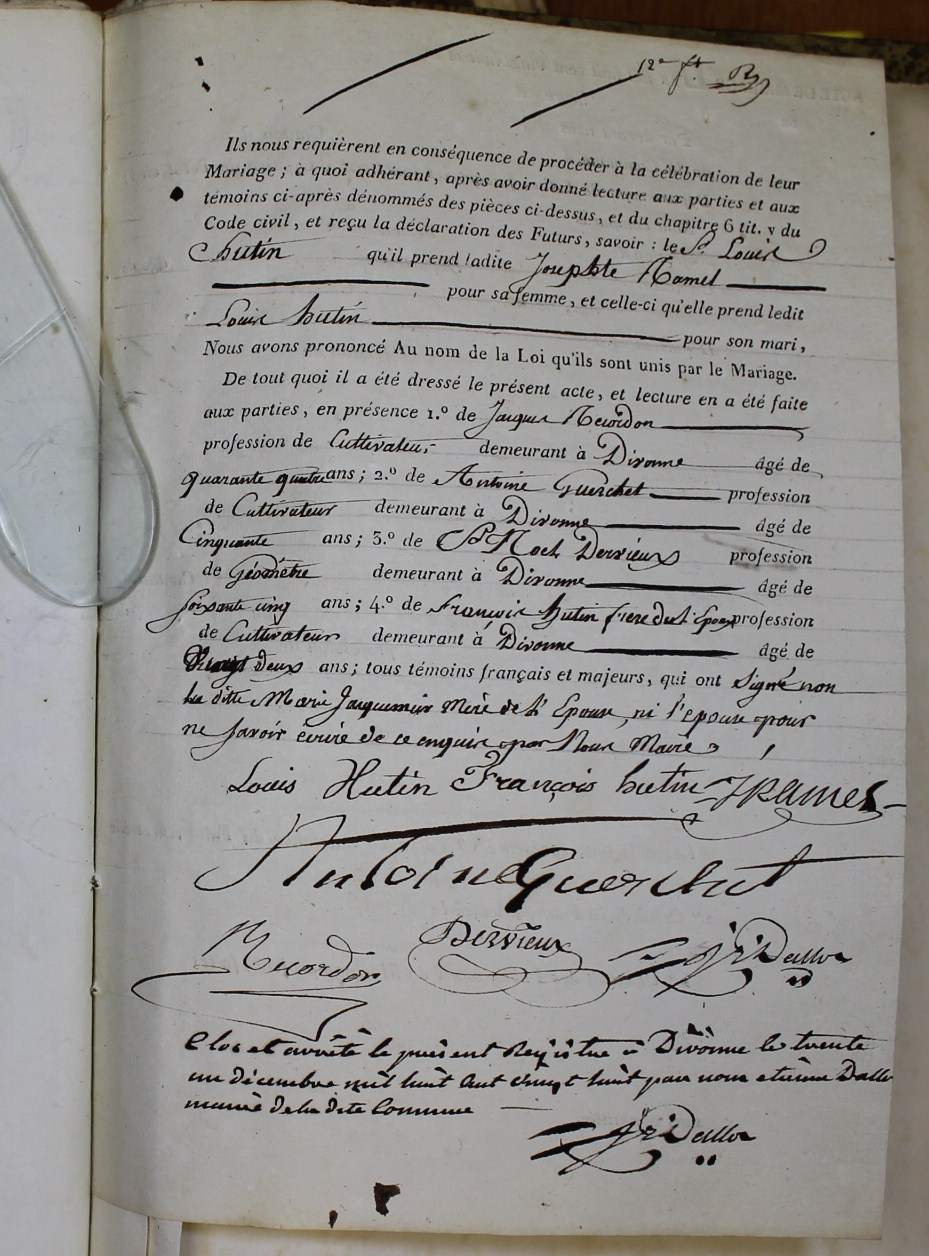 12e ft
Ils nous requièrent en conséquence de procéder à la célébration de leur
Mariage ; à quoi adhérant, après avoir donné lecture aux parties et aux
témoins ci-après dénommés des pièces ci-dessus, et du chapitre 6 tit. v du
Code civil, et reçu la déclaration des Futurs, savoir : le Sr Louis
hutin qu'il prend ladite Josephte Ramel
pour sa femme, et celle-ci qu'elle prend ledit
Louis hutin pour son mari,
Nous avons prononcé Au nom de la Loi qu'ils sont unis par le Mariage.
De tout quoi il a été dressé le présent acte, et lecture en a été faite
aux parties, en présence 1.º de Jacques Recordon
profession de Cultivateur demeurant à Divonne âgé de
quarante quatre ans ; 2.º de Antoine Guerchet profession
de Cultivateur demeurant à Divonne âgé de
Cinquante ans ; 3.º de Sr Roch Dervieux profession
de Géometre demeurant à Divonne âgé de
soixante cinq ans ; 4.º de François hutin frere de l'Epoux profession
de Cultivateur demeurant à Divonne âgé de
Vingt deux ans ; tous témoins français et majeurs, qui ont Signé non
la ditte Marie Jacquemier Mère de l'Epoux, ni l'epouse pour
ne savoir écrire de ce enquis par Nous Maire
Louis Hutin François hutin JRamel
Antoine Guerchet
Recordon Dervieux Dallox
Clos et arrêté le présent Régistre à Divonne le trente
un décembre mil huit cent vingt huit par nous etienne Dallox
maire de la dite Commune
Dallox